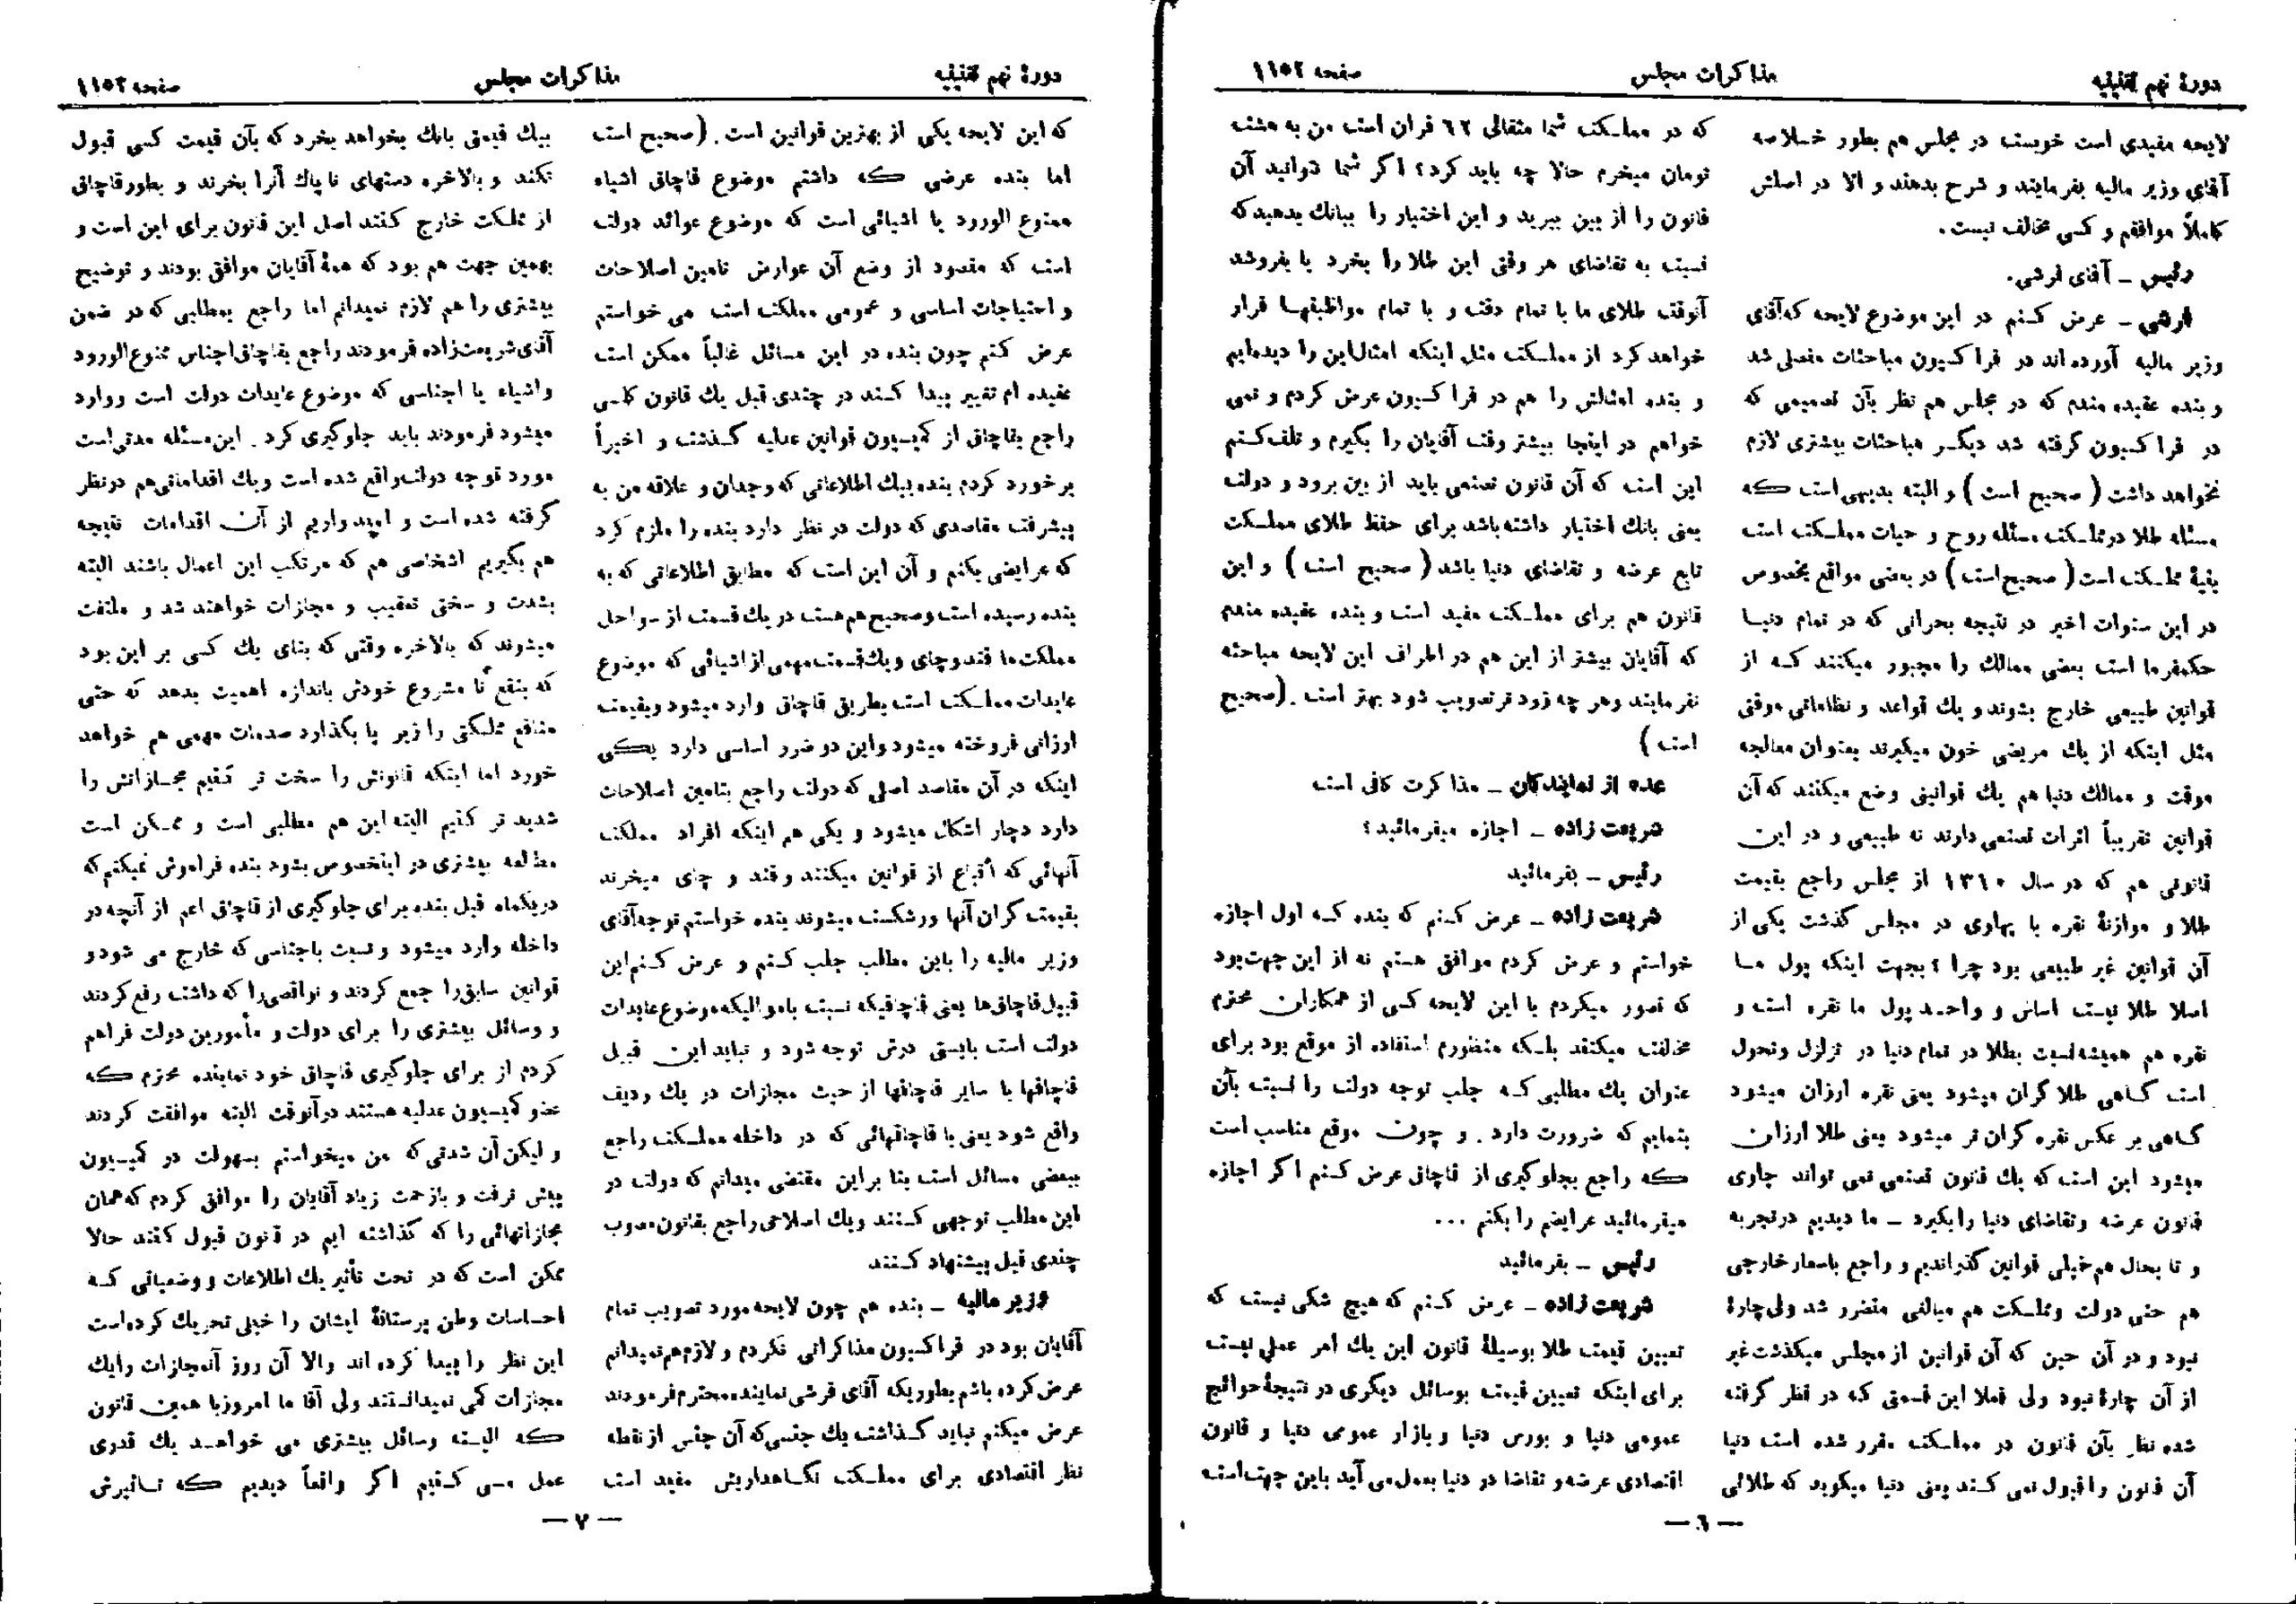 دورهٔ نهم تقنینیه
مذاکرات مجلس
صفحه ۱۱۵۲
لایحه مفیدی است خوبست در مجلس هم بطور خلاصه
آقای وزیر مالیه بفرمایند و شرح بدهند و الا در اصلش
کاملاً موافقم و کسی مخالف نیست.
رئیس ــ آقای فرشی.
فرشی ــ عرض کنم در این موضوع لایحه که آقای
وزیر مالیه آورده‌اند در فراکسیون مباحثات مفصلی شد
و بنده عقیده مندم که در مجلس هم نظر بآن تصمیمی که
در فراکسیون گرفته شد دیگر مباحثات بیشتری لازم
نخواهد داشت (صحیح است) و البته بدیهی است که
مسئله طلا در مملکت مسئله روح و حیات مملکت است
بقیهٔ مملکت است (صحیح است) در بعضی مواقع بخصوص
در این سنوات اخیر در نتیجه بحرانی که در تمام دنیا
حکمفرما است بعضی ممالک را مجبور میکنند که از
قوانین طبیعی خارج بشوند و یك قواعد و نظاماتی موقتی
مثل اینکه از یك مریضی خون میگیرند بعنوان معالجه
موقت و ممالك دنیا هم یك قوانینی وضع میکنند که آن
قوانین تقریباً اثرات تصنعی دارند نه طبیعی و در این
قانونی هم که در سال ۱۳۱۰ از مجلس راجع بقیمت
طلا و موازنهٔ نقره با پهلوی در مجلس گذشت یکی از
آن قوانین غیر طبیعی بود چرا؟ بجهت اینکه پول ما
اصلا طلا نیست اساس و واحد پول ما نقره است و
نقره هم همیشه نسبت بطلا در تمام دنیا در تزلزل و تحول
است گاهی طلا گران میشود یعنی نقره ارزان میشود
گاهی بر عکس نقره گران تر میشود یعنی طلا ارزان
میشود این است که یك قانون تصنعی نمی تواند جاری
قانون عرضه و تقاضای دنیا را بگیرد ــ ما دیدیم در تجربه
و تا بحال هم خیلی قوانین گذراندیم و راجع باسعار خارجی
هم حتی دولت و مملکت هم مبالغی متضرر شد ولی چارهٔ
نبود و در آن حین که آن قوانین از مجلس میگذشت غیر
از آن چارهٔ نبود ولی فعلا این قسمتی که در نظر گرفته
شده نظر بآن قانون در مملکت مقرر شده است دنیا
آن قانون را قبول نمی کند یعنی دنیا میگوید که طلائی
که در مملکت شما مثقالی ۶۲ قران است من به هشت
تومان میخرم حالا چه باید کرد؟ اگر شما توانید آن
قانون را از بین ببرید و این اختیار را ببانك بدهید که
نسبت به تقاضای هر وقتی این طلا را بخرد یا بفروشد
آنوقت طلای ما با تمام دقت و با تمام مواظبتها فرار
خواهد کرد از مملکت مثل اینکه امثال این را دیده‌ایم
و بنده امثالش را هم در فراکسیون عرض کردم و نمی
خواهم در اینجا بیشتر وقت آقایان را بگیرم و تلف کنم
این است که آن قانون تصنعی باید از بین برود و دولت
یعنی بانك اختیار داشته باشد برای حفظ طلای مملکت
تابع عرضه و تقاضای دنیا باشد (صحیح است) و این
قانون هم برای مملکت مفید است و بنده عقیده مندم
که آقایان بیشتر از این هم در اطراف این لایحه مباحثه
نفرمایند و هر چه زود تر تصویب شود بهتر است. (صحیح
است)
عده از نمایندگان ــ مذاکرت کافی است
شریعت زاده ــ اجازه میفرمائید؟
رئیس ــ بفرمائید
شریعت زاده ــ عرض کنم که بنده که اول اجازه
خواستم و عرض کردم موافق هستم نه از این جهت بود
که تصور میکردم با این لایحه کسی از همکاران محترم
مخالفت میکنند بلکه منظورم استفاده از موقع بود برای
عنوان یك مطلبی که جلب توجه دولت را نسبت بآن
بنمایم که ضرورت دارد. و چون موقع مناسب است
که راجع بجلوگیری از قاچاق عرض کنم اگر اجازه
میفرمائید عرایضم را بکنم ...
رئیس ــ بفرمائید
شریعت زاده ــ عرض کنم که هیچ شکی نیست که
تعیین قیمت طلا بوسیلهٔ قانون این یك امر عملی نیست
برای اینکه تعیین قیمت بوسائل دیگری در نتیجهٔ حوائج
عمومی دنیا و بورس دنیا و بازار عمومی دنیا و قانون
اقتصادی عرضه و تقاضا در دنیا بعمل می آید باین جهت است
ــ ۶ ــ
دورهٔ نهم تقنینیه
مذاکرات مجلس
صفحه ۱۱۵۳
که این لایحه یکی از بهترین قوانین است. (صحیح است
اما بنده عرضی که داشتم موضوع قاچاق اشیاء
ممنوع الورود یا اشیائی است که موضوع عوائد دولت
است که مقصود از وضع آن عوارض تامین اصلاحات
و احتیاجات اساسی و عمومی مملکت است می خواستم
عرض کنم چون بنده در این مسائل غالباً ممکن است
عقیده‌ام تغییر پیدا کند در چندی قبل یك قانون کلی
راجع بقاچاق از کمیسیون قوانین عدلیه گذشت و اخیراً
برخورد کردم بنده بیك اطلاعاتی که وجدان و علاقه من به
پیشرفت مقاصدی که دولت در نظر دارد بنده را ملزم کرد
که عرایضی بکنم و آن این است که مطابق اطلاعاتی که به
بنده رسیده است و صحیح هم هست در یك قسمت از سواحل
مملکت ما قند و چای و یك قسمت مهمی از اشیائی که موضوع
عایدات مملکت است بطریق قاچاق وارد میشود و بقیمت
ارزانی فروخته میشود و این دو ضرر اساسی دارد یکی
اینکه در آن مقاصد اصلی که دولت راجع بتامین اصلاحات
دارد دچار اشکال میشود و یکی هم اینکه افراد مملکت
آنهائی که اتباع از قوانین میکنند و قند و چای میخرند
بقیمت گران آنها ورشکست میشوند بنده خواستم توجه آقای
وزیر مالیه را باین مطلب جلب کنم و عرض کنم این
قبیل قاچاق‌ها یعنی قاچاقیکه نسبت باموالیکه موضوع عایدات
دولت است بایستی درش توجه شود و نباید این قبیل
قاچاقها با سایر قاچاقها از حیث مجازات در یك ردیف
واقع شود یعنی با قاچاقهائی که در داخله مملکت راجع
ببعضی مسائل است بنا براین مقتضی میدانم که دولت در
این مطلب توجهی کنند و یك اصلاحی راجع بقانون مصوب
چندی قبل پیشنهاد کنند
وزیر مالیه ــ بنده هم چون لایحه مورد تصویب تمام
آقایان بود در فراکسیون مذاکراتی نکردم و لازم هم نمیدانم
عرض کرده باشم بطوریکه آقای فرشی نماینده محترم فرمودند
عرض میکنم نباید گذاشت یك جنسی که آن جنس از نقطه
نظر اقتصادی برای مملکت نگاهداریش مفید است
بیك قیمتی بانك بخواهد بخرد که بآن قیمت کسی قبول
نکند و بالاخره دستهای ناپاك آنرا بخرند و بطور قاچاق
از مملکت خارج کنند اصل این قانون برای این است و
بهمین جهت هم بود که همهٔ آقایان موافق بودند و توضیح
بیشتری را هم لازم نمیدانم اما راجع بمطلبی که در ضمن
آقای شریعت زاده فرمودند راجع بقاچاق اجناس ممنوع الورود
و اشیاء یا اجناسی که موضوع عایدات دولت است و وارد
میشود فرمودند باید جلوگیری کرد. این مسئله مدتی است
مورد توجه دولت واقع شده است و یك اقداماتی هم در نظر
گرفته شده است و امید واریم از آن اقدامات نتیجه
هم بگیریم اشخاصی هم که مرتکب این اعمال باشند البته
بشدت و سختی تعقیب و مجازات خواهند شد و ملتفت
میشوند که بالاخره وقتی که بنای یك کسی بر این بود
که بنفع نا مشروع خودش باندازه اهمیت بدهد که حتی
منافع مملکتی را زیر پا بگذارد صدمات مهمی هم خواهد
خورد اما اینکه قانونش را سخت تر کنیم مجازاتش را
شدید تر کنیم البته این هم مطلبی است و ممکن است
مطالعه بیشتری در اینخصوص بشود بنده فراموش نمیکنم که
در یکماه قبل بنده برای جلوگیری از قاچاق اعم از آنچه در
داخله وارد میشود و نسبت باجناسی که خارج می شود و
قوانین سابق را جمع کردند و نواقصی را که داشت رفع کردند
و وسائل بیشتری را برای دولت و مأمورین دولت فراهم
کردم از برای جلوگیری قاچاق خود نماینده محترم که
عضو کمیسیون عدلیه هستند در آنوقت البته موافقت کردند
و لیکن آن شدتی که من میخواستم بسهولت در کمیسیون
پیش نرفت و بازحمت زیاد آقایان را موافق کردم که همان
مجازاتهائی را که گذاشته ایم در قانون قبول کنند حالا
ممکن است که در تحت تأثیر یك اطلاعات و وضعیاتی که
احساسات وطن پرستانهٔ ایشان را خیلی تحریك کرده است
این نظر را پیدا کرده اند والا آن روز آنمجازات را یك
مجازات کمی نمیدانستند ولی آقا ما امروز با همین قانون
که البته وسائل بیشتری می خواهد یك قدری
عمل می کنیم اگر واقعاً دیدیم که تأثیرش
ــ ۷ ــ